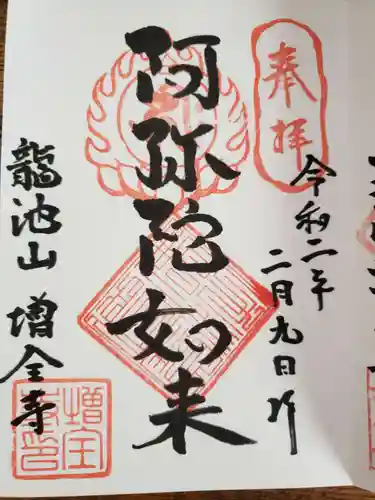 奉拝
令和二年
二月九日
阿弥陀如来
龍池山 増全寺
増全寺印